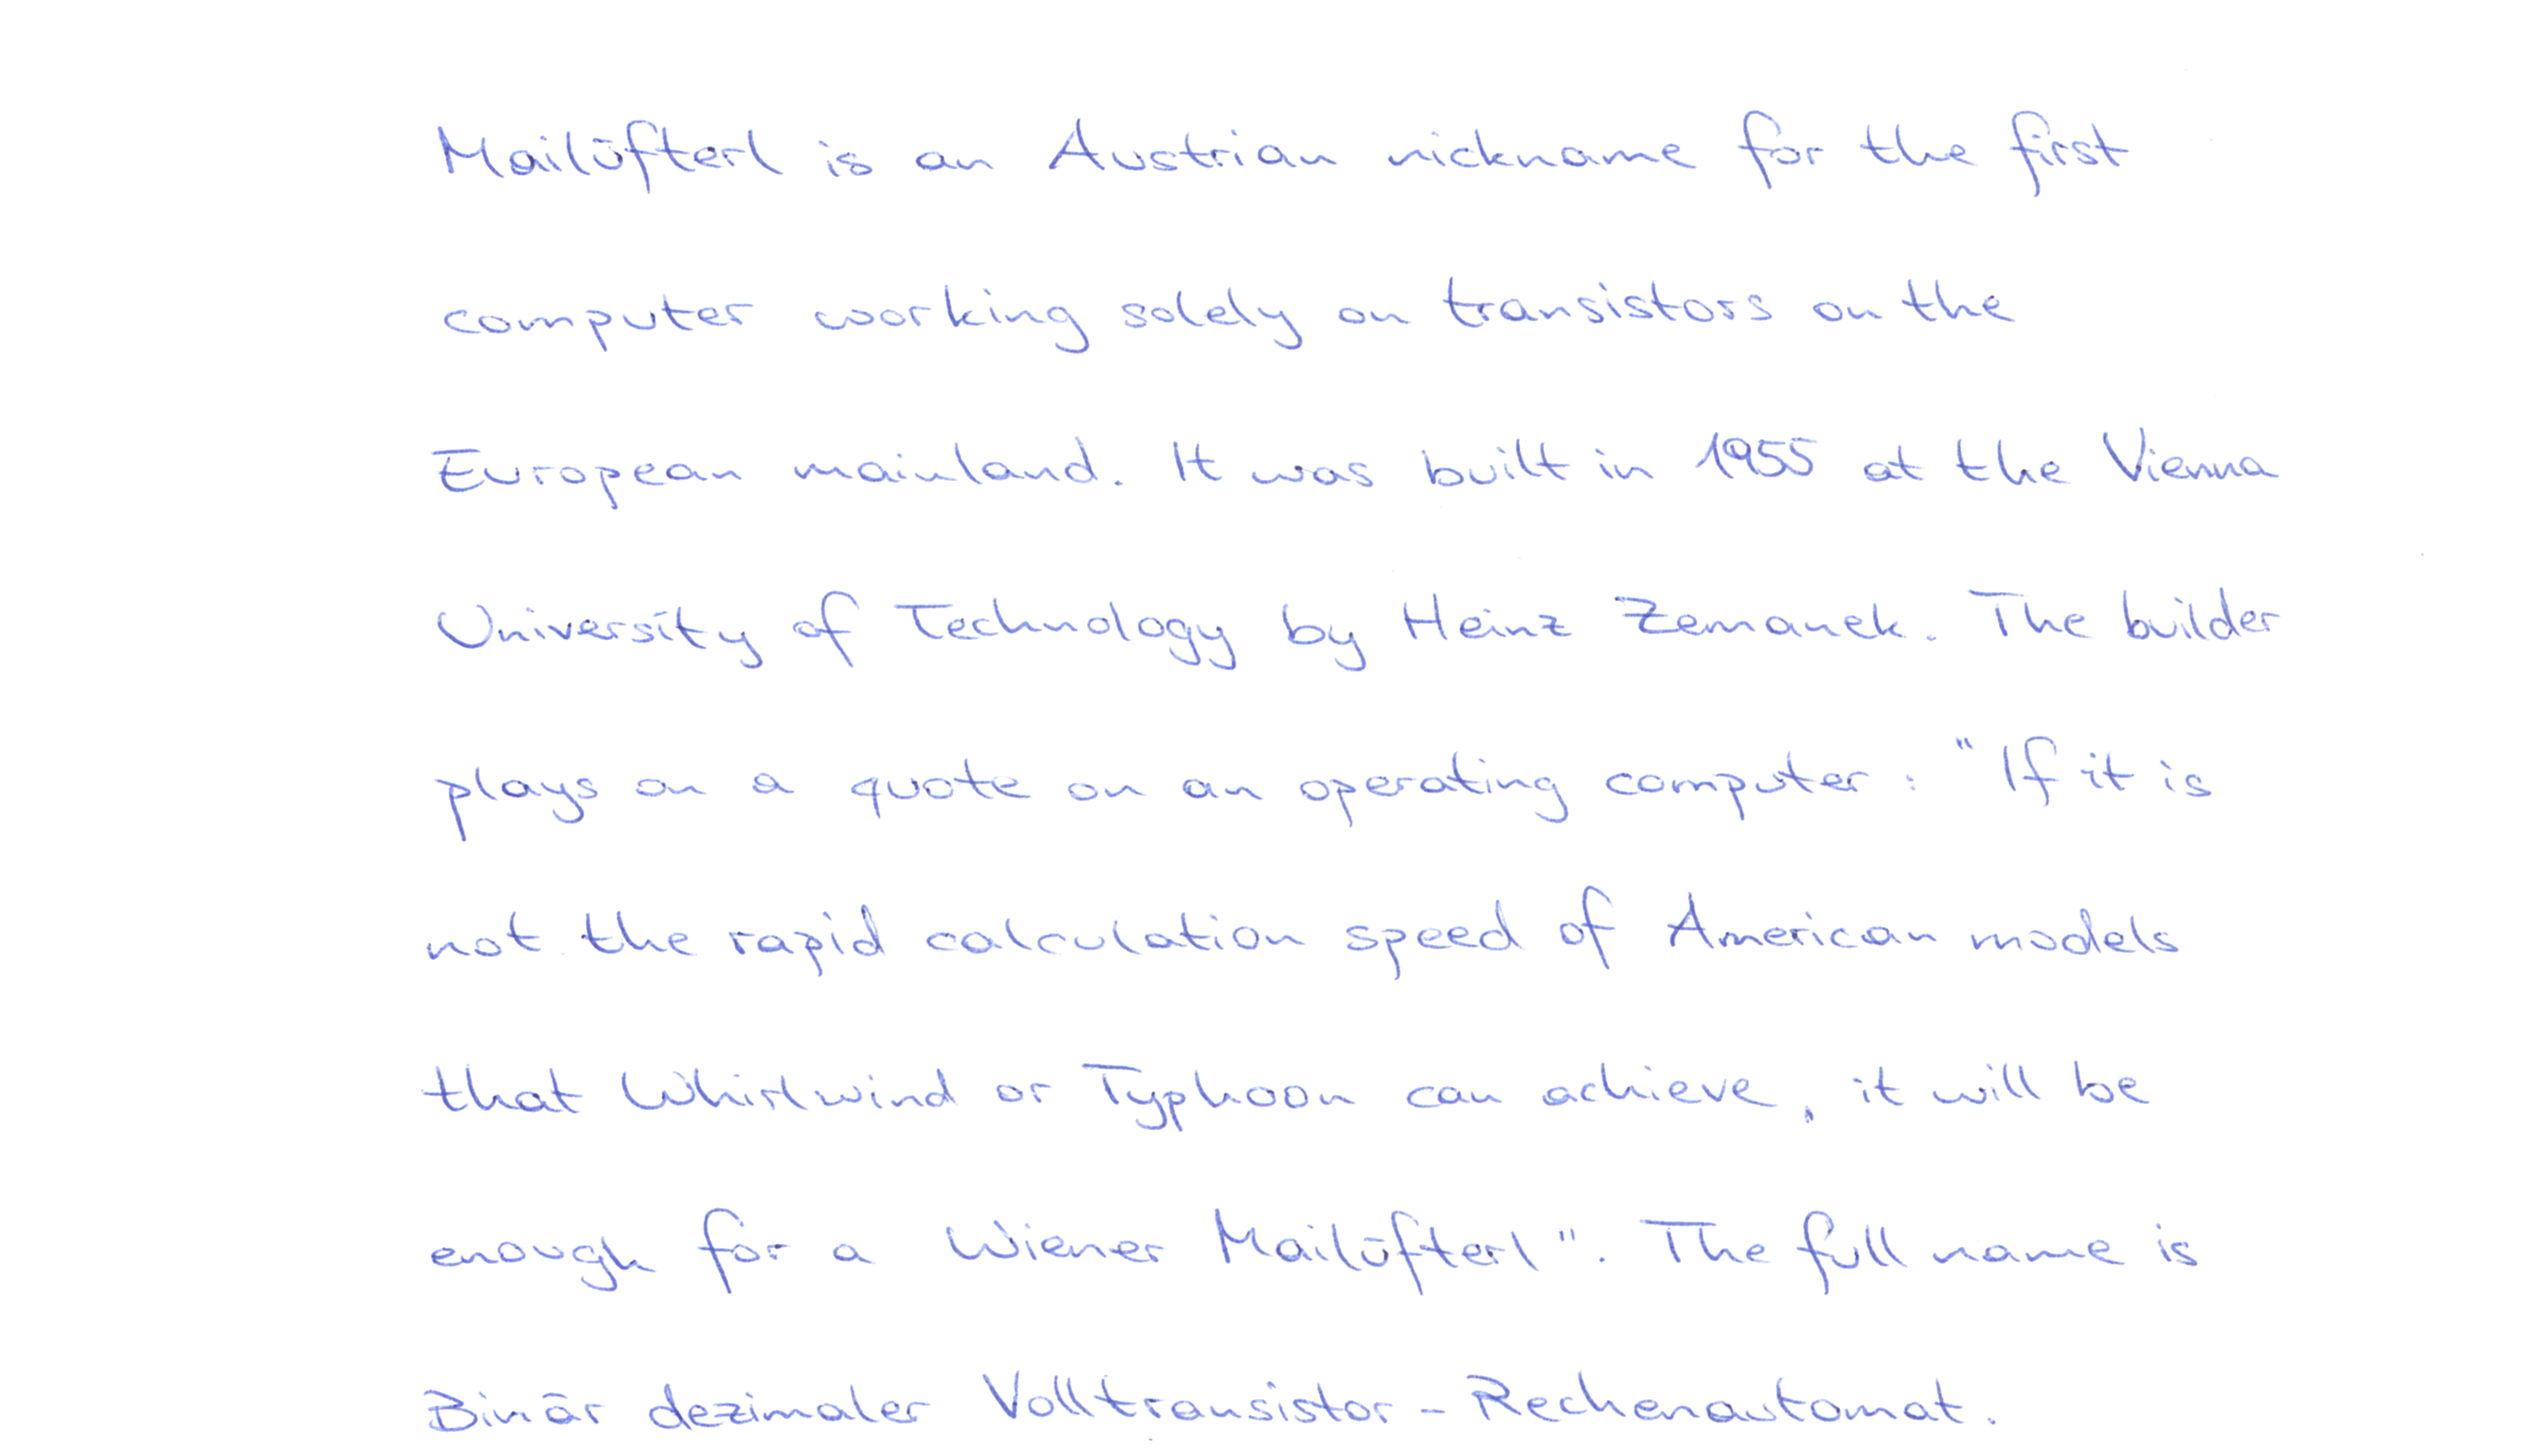 Mailüfterl is an Austrian nickname for the first
computer working solely on transistors on the
European mainland. It was built in 1955 at the Vienna
University of Technology by Heinz Zemanek. The builder
plays on a quote on an operating computer: "If it is
not the rapid calculation speed of American models
that Whirlwind or Typhoon can achieve, it will be
enough for a Wiener Mailüfterl". The full name is
Binär dezimaler Volltransistor-Rechenautomat.